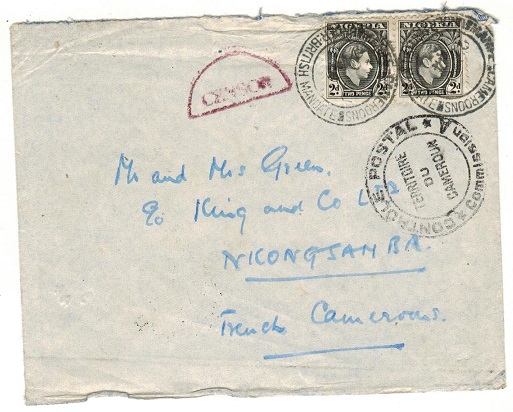 NIGERIA NIGERIA
2d TWO PENCE 2d 2d TWO PENCE 2d
MAMFE CAMEROONS
CENSOR
CONTROLE POSTAL ★ Commission A ★
TERRITOIRE
DU
CAMEROUN
Mr and Mrs Green.
c/o King and Co LTD
NKONGSAMBA.
French Cameroons.